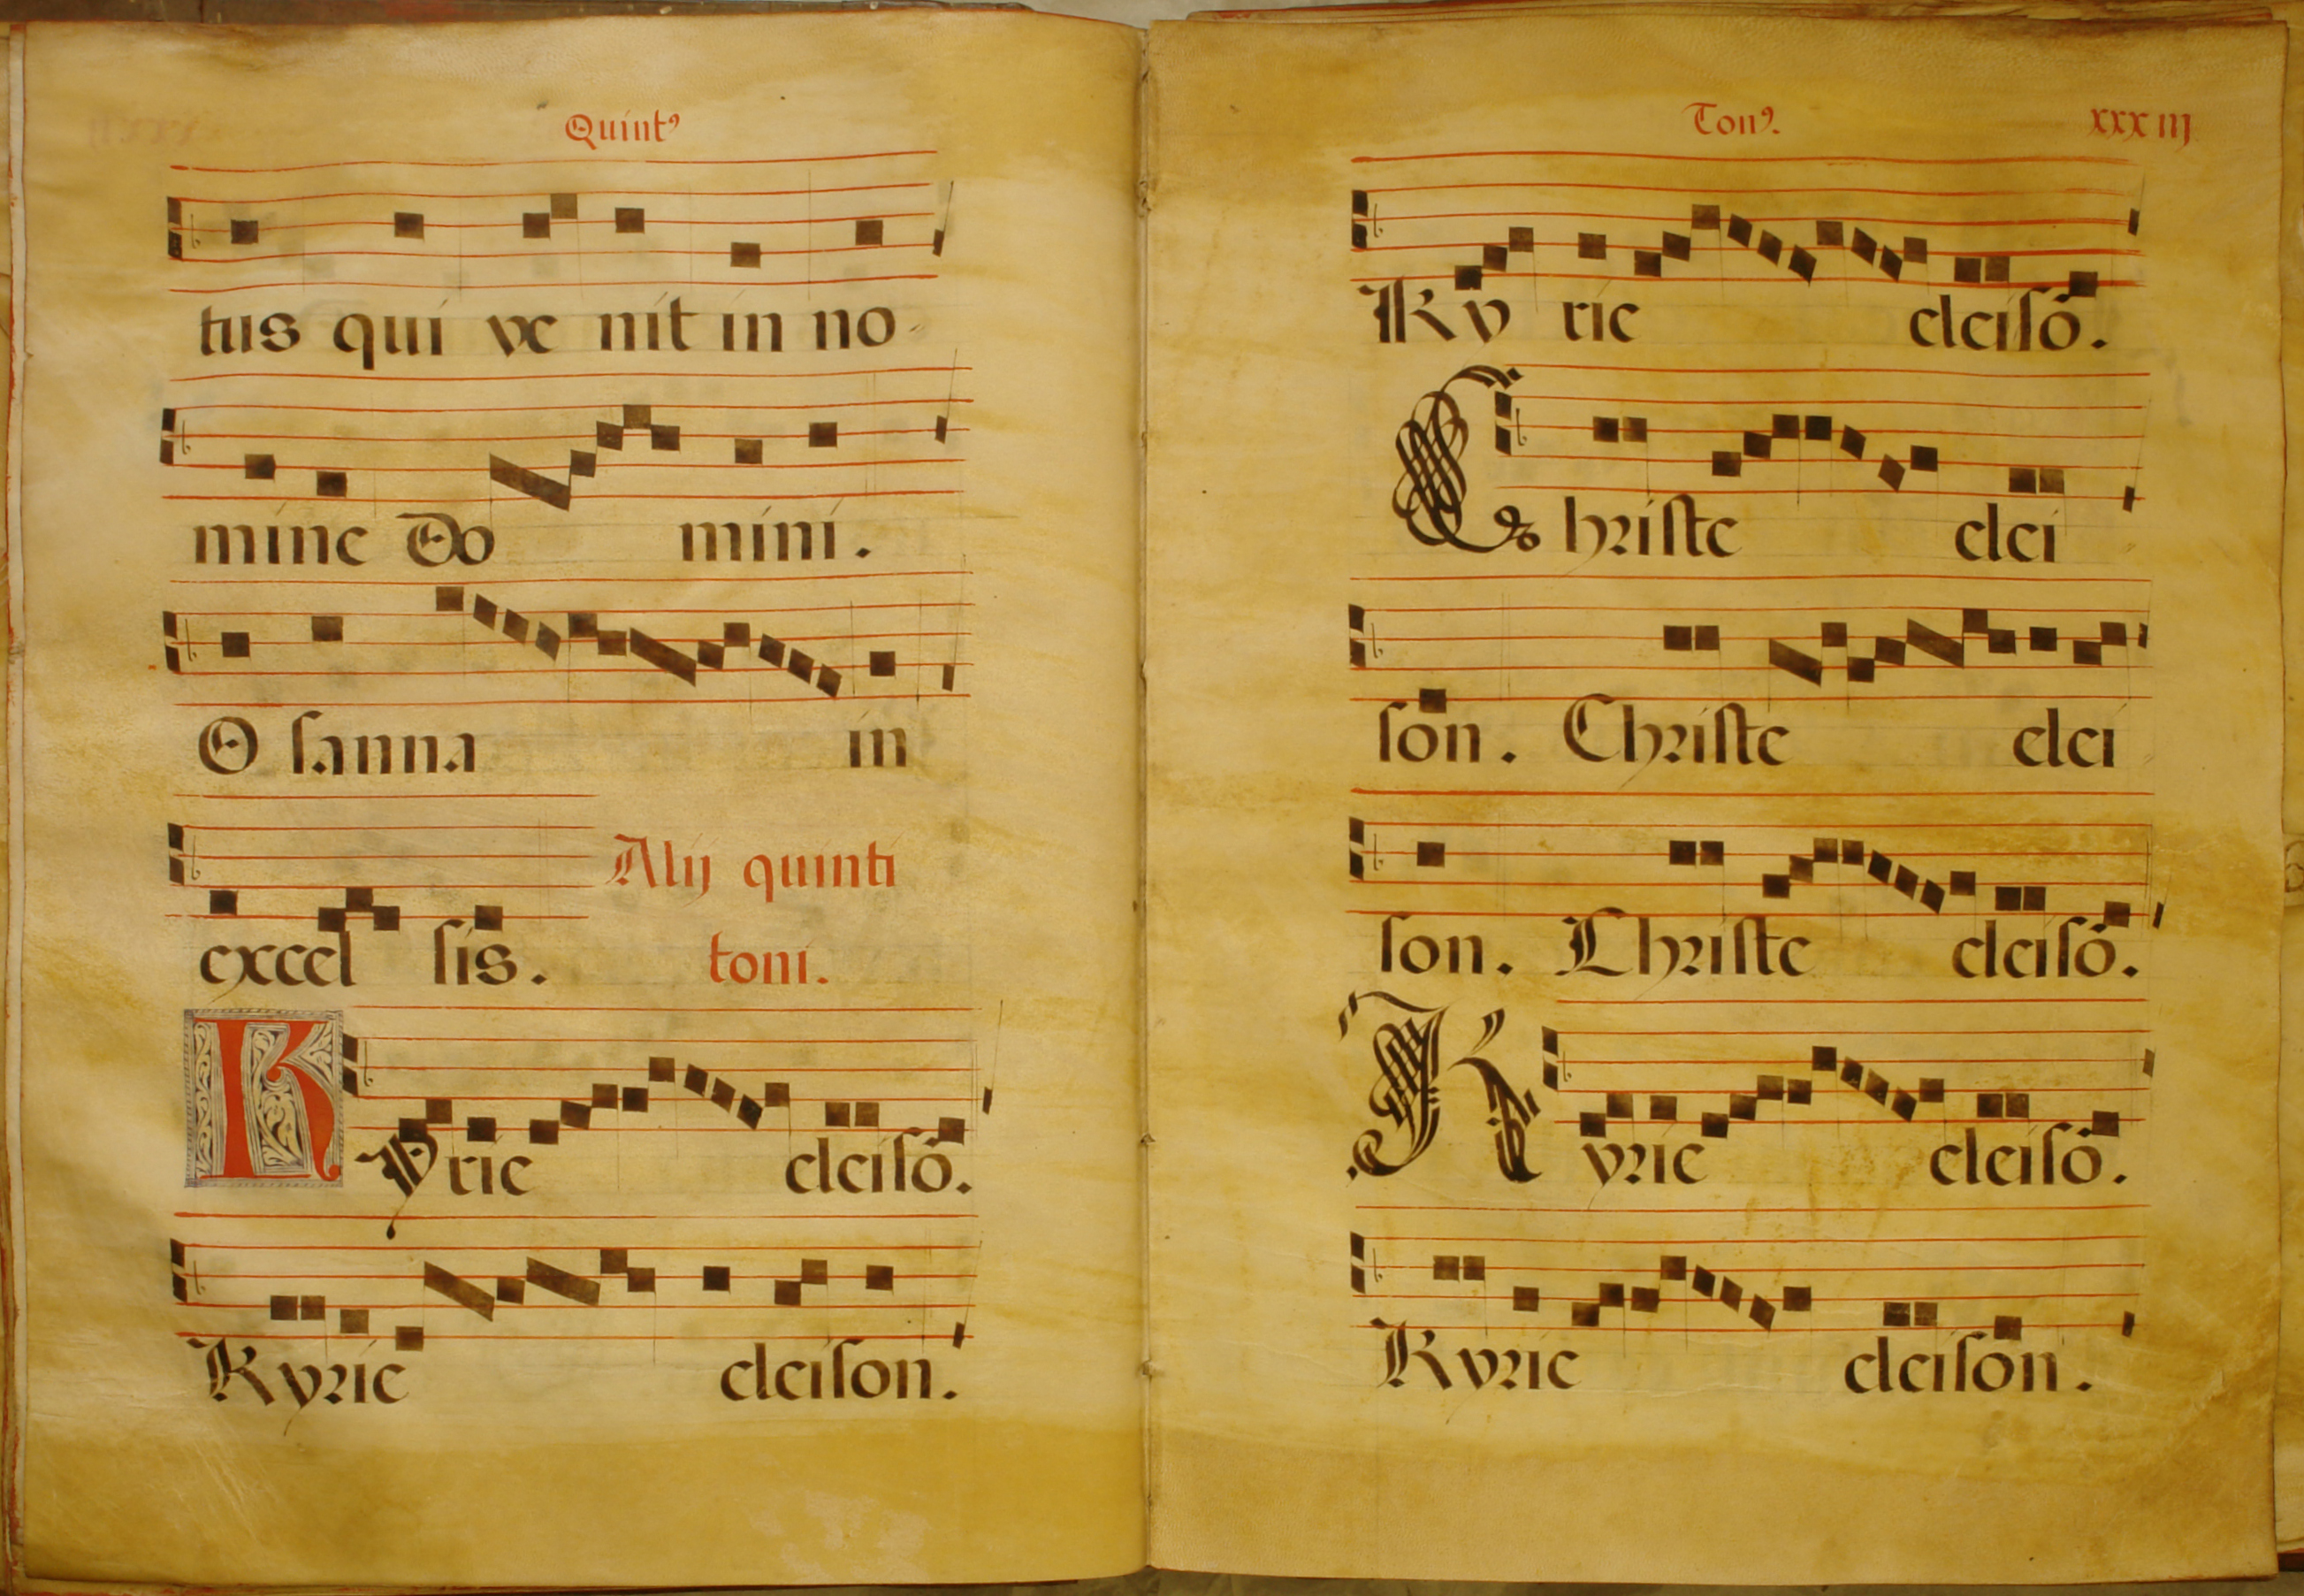 Quintꝰ
tus qui ve nit in no
mine Do mini.
O sanna in
excel sis.
Alij quinti
toni.
Kyrie eleisõ.
Kyrie eleison.
Tonꝰ. xxxiij
Ky rie eleisõ.
Christe elei
son. Christe elei
son. Christe eleisõ.
Kyrie eleisõ.
Kyrie eleison.